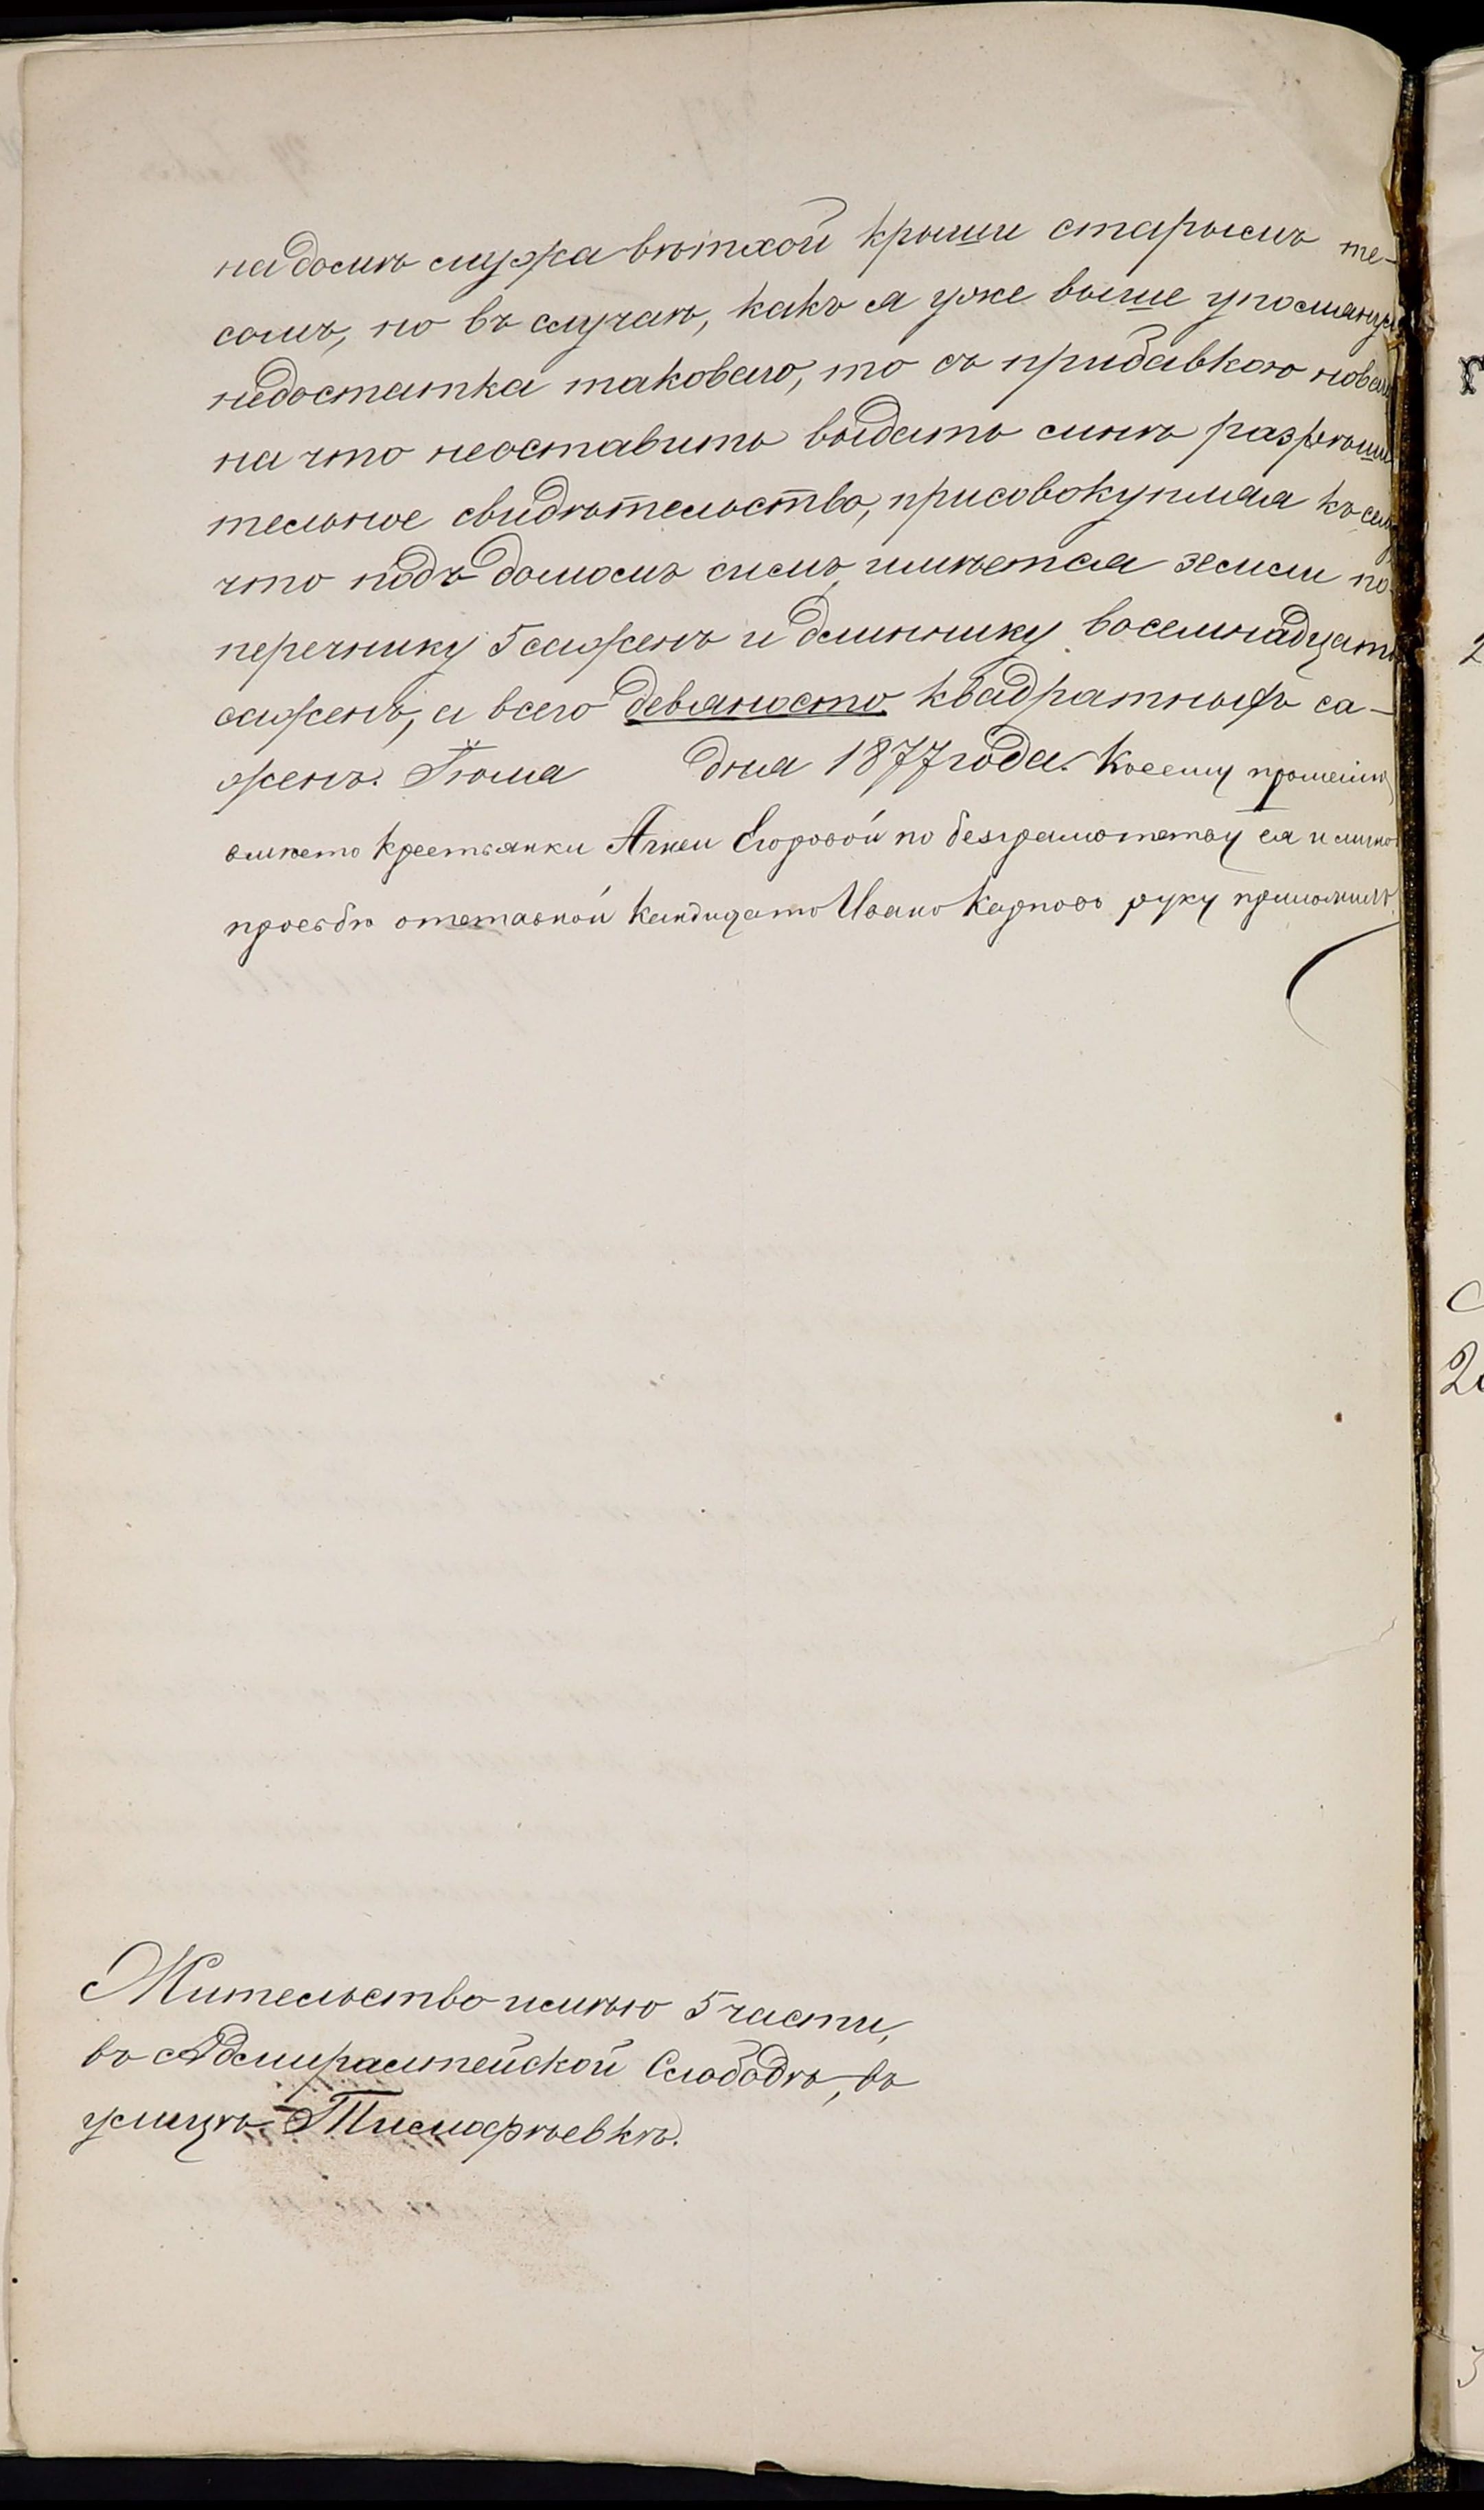 на домѣ мужа вѣтхой крыши старымъ те-
сомъ, но въ случаѣ, какъ я уже выше упомянула
недостатка таковаго, то съ прибавкою новаго
на что неоставить выдать мнѣ разрѣши
тельное свидѣтельство, присовокупляя къ сему
что подъ домомъ симъ имѣется земли по-
перечнику 5 саженъ и длиннику восемнадцать
саженъ, а всего девяносто квадратныхъ са-
женъ. Іюля дня 1877 года. Къ сему прошенію
вмѣсто крестьянки Егоровой по безграмотству ея и личной
прозьбѣ отставной кандидатъ Иванъ Карповъ руку приложилъ
Жительство имѣю 5 части,
въ Адмиралтейской Слободѣ, въ
улицѣ Тимофѣевкѣ.